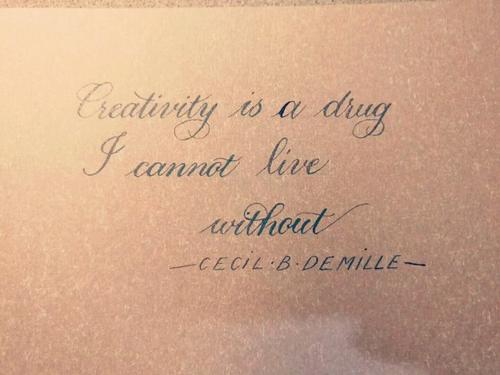 Creativity is a drug
I cannot live
without
—CECIL·B·DEMILLE—